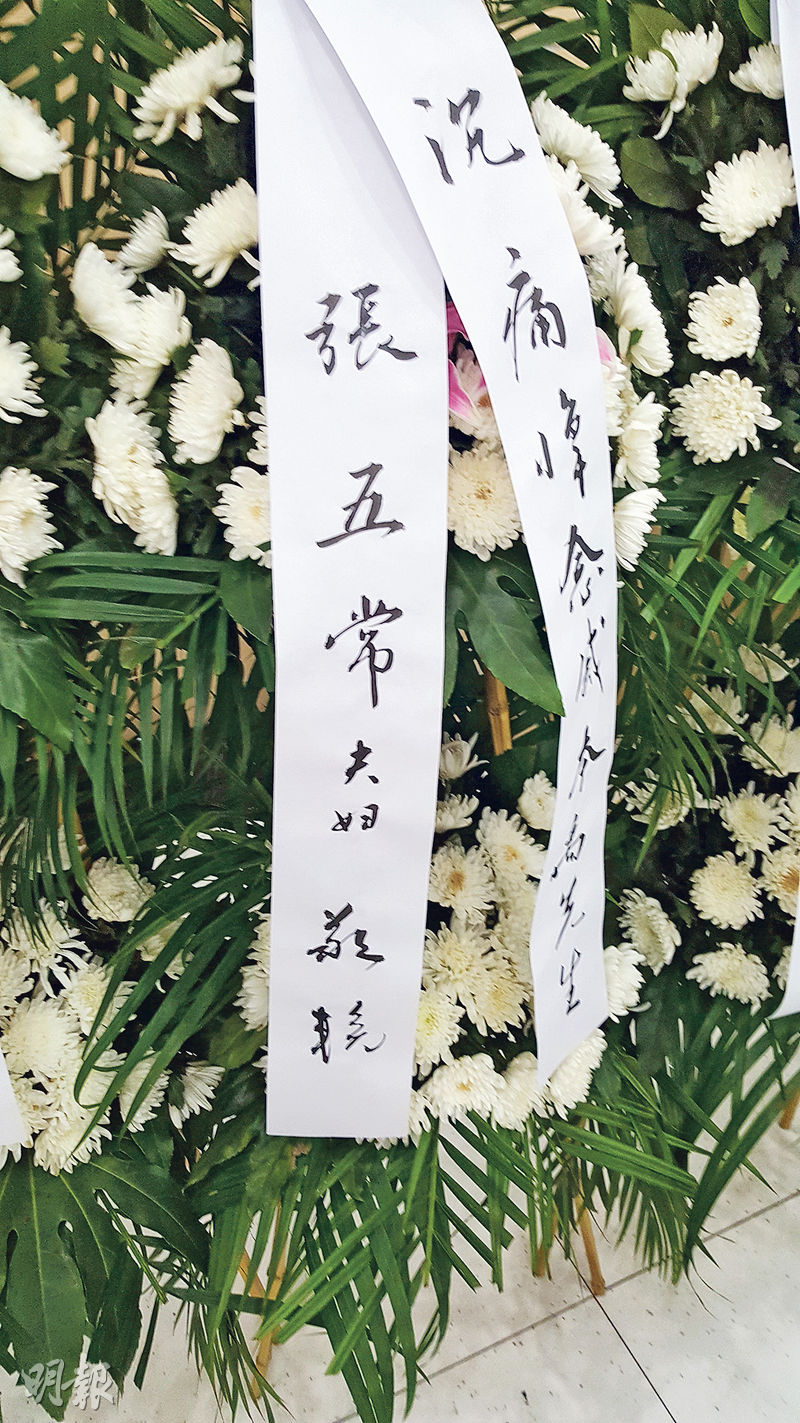 沉痛悼念咸永喬先生
張五常夫婦敬輓
明報